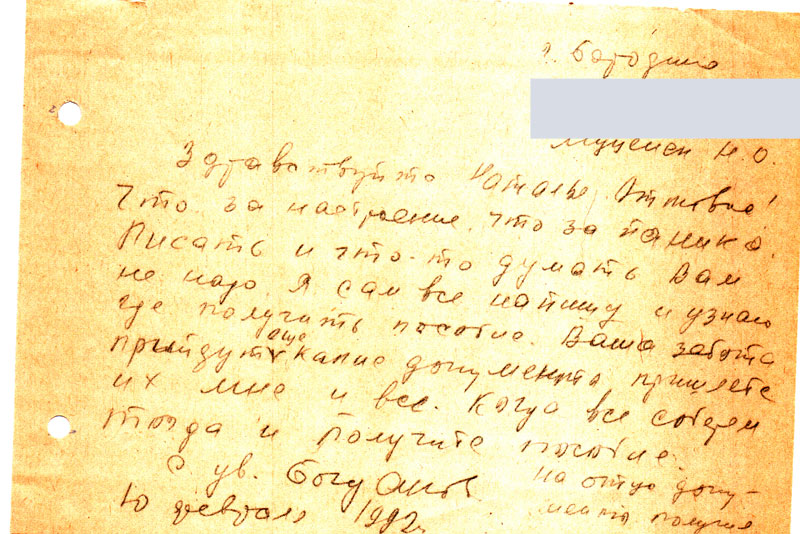 г. Бородино
Мучелен Н. О.
Здравствуйте Наталья Оттовна!
Что за настроение, что за паника.
Писать и что-то думать Вам
не надо. Я сам все напишу и узнаю
где получить пособие. Ваша забота
придут еще какие документы пришлете
их мне и все. Когда все соберем
тогда и получите пособие.
С ув. Богданов
10 февраля 1992г.
на отца доку-
менты получил